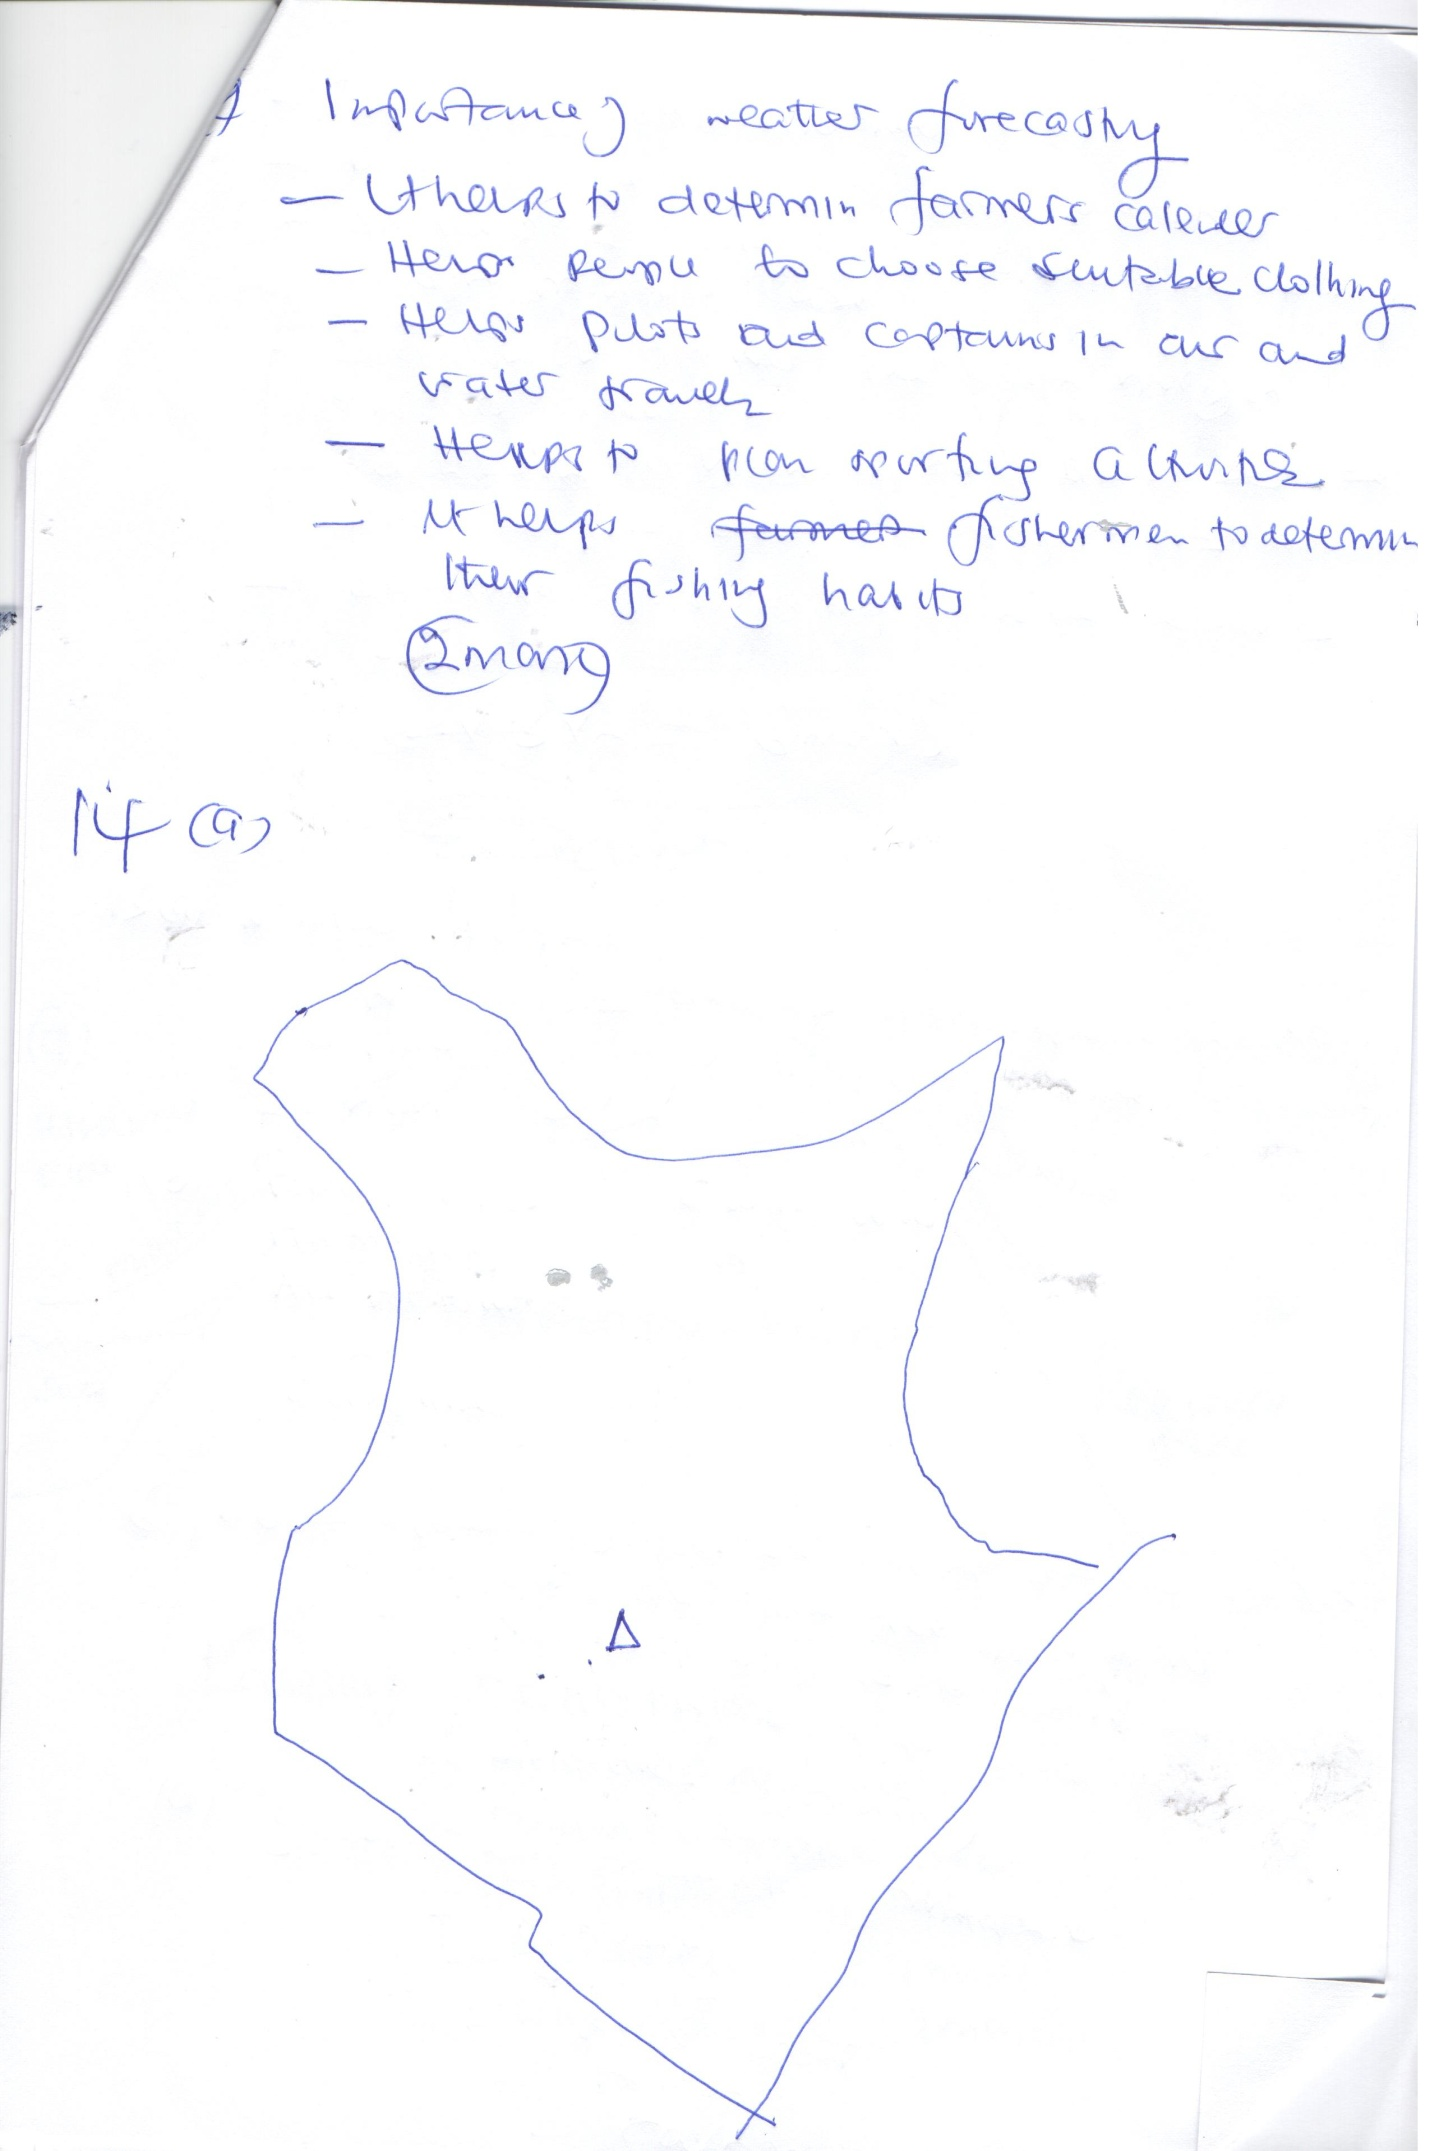 Importance of weather forecasting
— It helps to determin farmers calender
— Helps people to choose suitable clothing
— Helps Pilots and captains in air and
water travels
— Helps to plan sporting activities
— It helps farmer fishermen to determin
their fishing habits
2mars
14 (a)